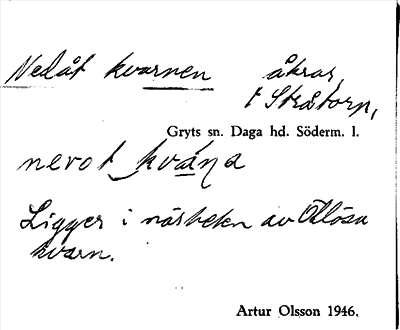 Nedåt kvarnen åkrar,
t Stråtorp,
Gryts sn. Daga hd. Söderm. l.
nerot kvána
Ligger i närheten av Ötlösa
kvarn.
Artur Olsson 1946.